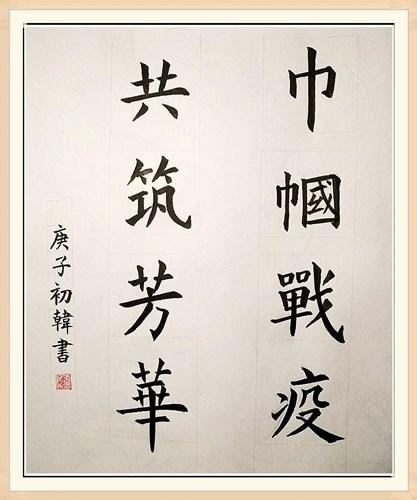 巾帼戰疫
共筑芳華
庚子初韓書